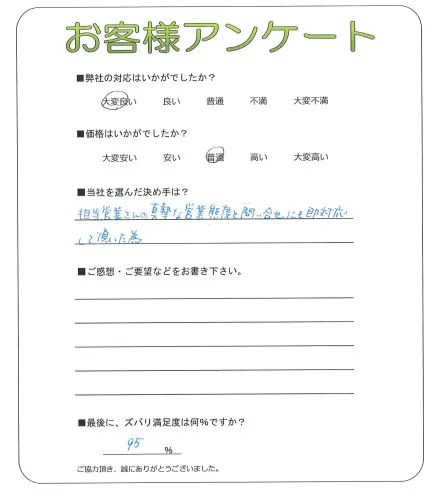 お客様アンケート
■弊社の対応はいかがでしたか?
大変良い 良い 普通 不満 大変不満
■価格はいかがでしたか?
大変安い 安い 普通 高い 大変高い
■当社を選んだ決め手は?
担当営業さんの真摯な営業態度と問い合せにも即対応
して頂いた為
■ご感想・ご要望などをお書き下さい。
■最後に、ズバリ満足度は何%ですか?
95 %
ご協力頂き、誠にありがとうございました。